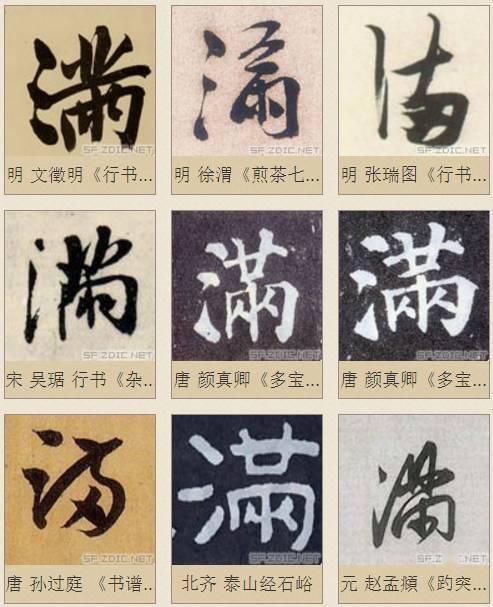 滿
SF.ZDIC.NET
明 文徵明《行书...
滿
SF.ZDIC.NET
明 徐渭《煎茶七...
滿
SF.ZDIC.NET
明 张瑞图《行书...
滿
SF.ZDIC.NET
宋 吴琚 行书《杂...
滿
SF.ZDIC.NET
唐 颜真卿《多宝...
滿
SF.ZDIC.NET
唐 颜真卿《多宝...
滿
SF.ZDIC.NET
唐 孙过庭 《书谱...
滿
SF.ZDIC.NET
北齐 泰山经石峪
滿
SF.ZDIC.NET
元 赵孟頫《趵突...